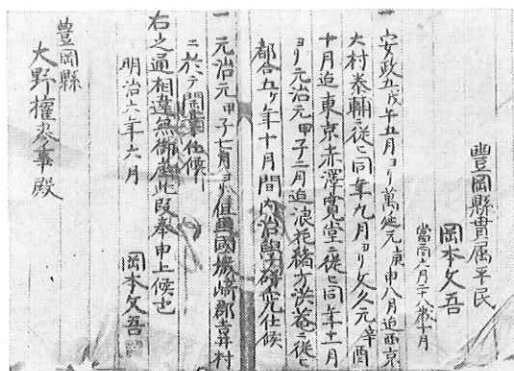 豊岡縣貫属平民
岡本文吾
當酉六月二十八歳十月
一 安政五戊午五月ヨリ萬延元庚申八月迄西京
大村泰輔ニ從ヒ同年九月ヨリ文久元辛酉
十月迄東京赤澤寛堂ニ從ヒ同年十一月
ヨリ元治元甲子二月迄浪花緒方洪菴ニ從ヒ
都合五ケ年十月間内治學研究仕候
一 元治元甲子七月ヨリ但馬國城崎郡
ニ於テ開業仕候
右之通相違無御座此段奉申上候也
明治六年六月
岡本文吾
豊岡縣
大野權参事殿